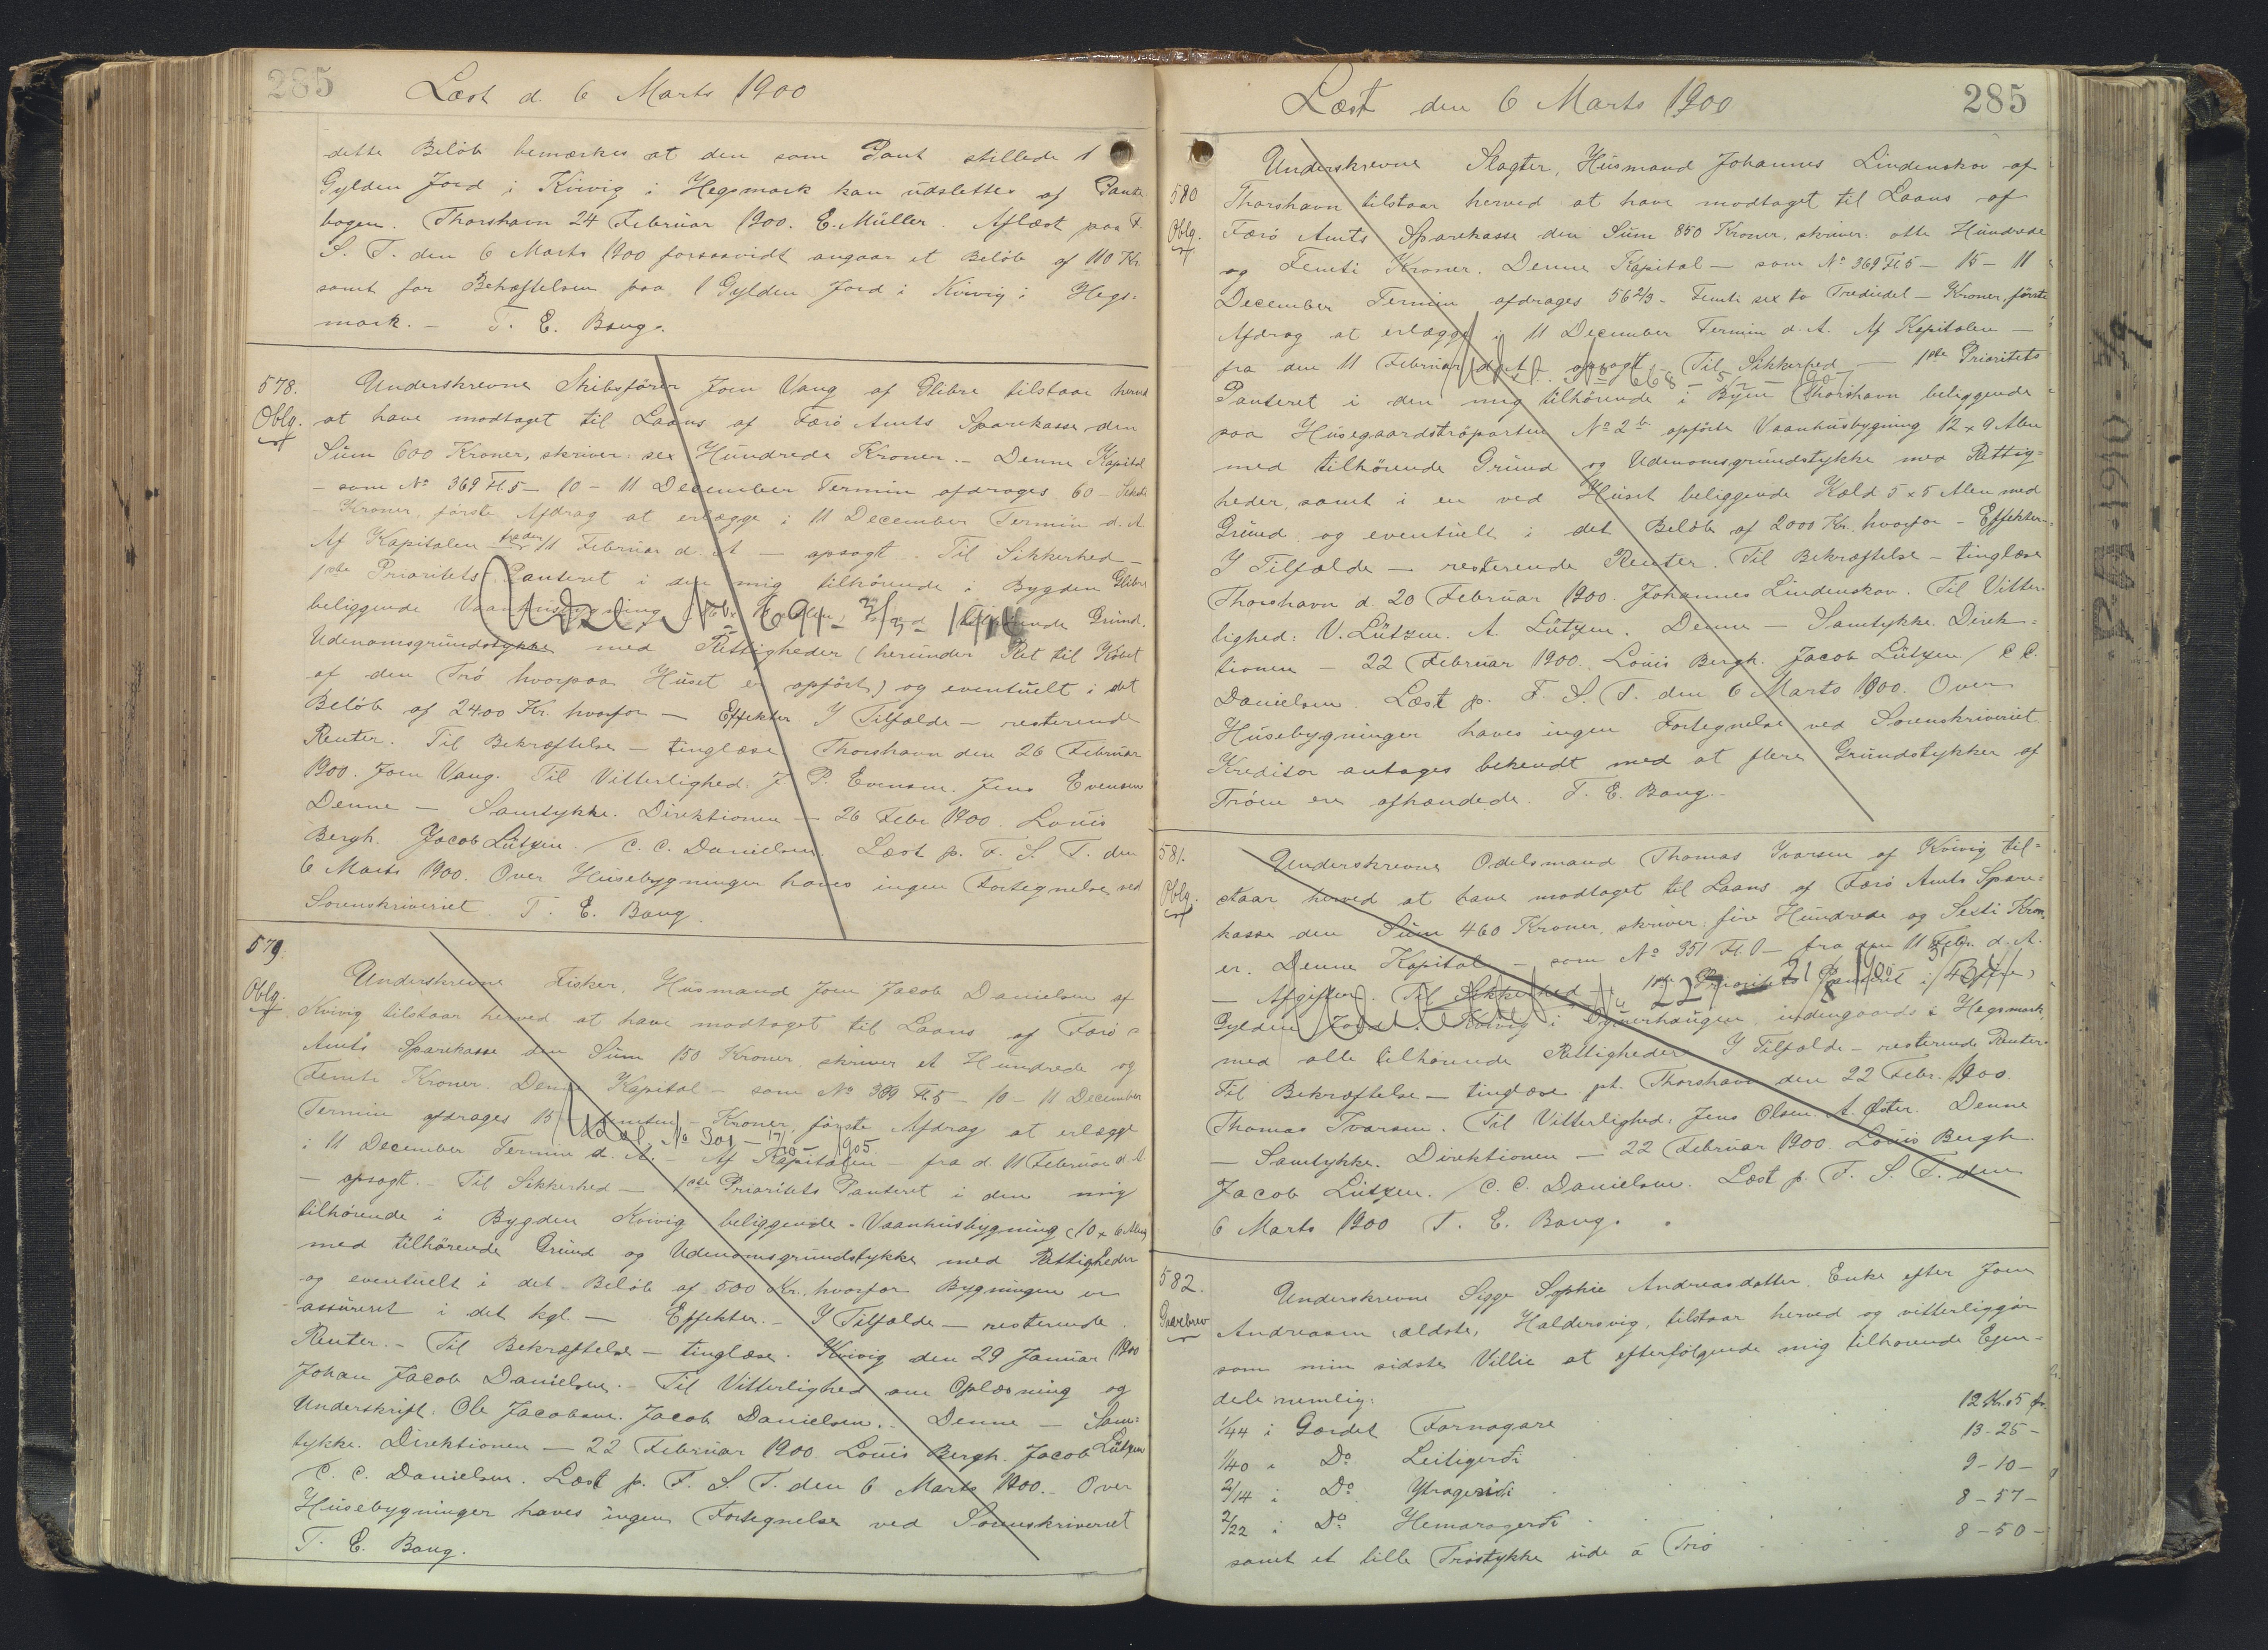 285
Læst d. 6 Marts 1900
dette Beløb bemærkes at den som Pant stillede 1
Gylden Jord i Kvivig i Hegsmark kan udslettes af Pante
bogen. Thorshavn 24 Februar 1900. E. Müller. Aflæst paa F.
S. T. den 6 Marts 1900 forsaavidt angaar et Beløb af 110 Kr.
samt for Behæftelsen paa 1 Gylden Jord i Kvivig i Hegs=
mark. — T. E. Bang.
578.
Oblg.
Underskrevne Skibsfører Joen Vang af Glibre tilstaar herved
at have modtaget til Laans af Færø Amts Sparekasse den
Sum 600 Kroner, skriver: sex Hundrede Kroner. — Denne Kapital
— som No 369 Fl. 5 — 10 — 11 December Termin afdrages 60 —
Kroner, første Afdrag at erlægge i 11 December Termin d. A.
Af Kapitalen — fra den 11 Februar d. A — opsagt. Til Sikkerhed —
1ste Prioritets Panteret i den mig tilhørende i Bygden Glibre
beliggende Vaanhusbygning Grund.
Udsl No 691 - 3/3 - 19
Udenomsgrundstykke med Rettigheder (herunder Ret til Købet
af den Trø hvorpaa Huset er opført) og eventuelt i det
Beløb af 2400 Kr. hvorfor — Effekter. I Tilfælde — resterende
Renter. Til Bekræftelse — tinglæse Thorshavn den 26 Februar
1900. Joen Vang. Til Vitterlighed: J. P. Evensen. Jens Evensen
Denne — Samtykke. Direktionen — 26 Febr 1900. Louis
Bergh. Jacob Lützen. / C. C. Danielsen. Læst p. F. S. T. den
6 Marts 1900. Over Husebygninger haves ingen Fortegnelse ved
Sorenskriveriet. T. E. Bang.
579.
Oblg.
Underskrevne Fisker, Husmand Joen Jacob Danielsen af
Kvivig tilstaar herved at have modtaget til Laans af Færø
Amts Sparekasse den Sum 150 Kroner, skriver et Hundrede og
Femti Kroner. Denne Kapital — som No 369 Fl. 5 — 10 — 11 December
Termin afdrages 15 — femten — Kroner, første Afdrag at erlægge
Udsl. No 301 - 17/10 - 1905
i 11 December Termin d. A. — Af Kapitalen — fra d. 11 Februar d. A
— opsagt. — Til Sikkerhed — 1ste Prioritets Panteret i den mig
tilhørende i Bygden Kvivig beliggende Vaanhusbygning (10 x 6 Alen)
med tilhørende Grund og Udenomsgrundstykke med Rettigheder
og eventuelt i det Beløb af 500 Kr., hvorfor Bygningen er
assureret i det kgl. — Effekter. — I Tilfælde — resterende
Renter. — Til Bekræftelse — tinglæse. Kvivig den 29 Januar 1900
Johan Jacob Danielsen. — Til Vitterlighed om Oplæsning og
Underskrift: Ole Jacobsen. Jacob Danielsen. — Denne — Sam=
tykke. Direktionen — 22 Februar 1900. Louis Bergh. Jacob Lützen
C. C. Danielsen. Læst p. F. S. T. den 6 Marts 1900. — Over
Husebygninger haves ingen Fortegnelse ved Sorenskriveriet
T. E. Bang.
Læst den 6 Marts 1900
285
580
Oblg.
Underskrevne Slagter, Husmand Johannes Lindenskov af
Thorshavn tilstaar herved at have modtaget til Laans af
Færø Amts Sparekasse den Sum 850 Kroner, skriver: otte Hundrede
og Femti Kroner. Denne Kapital — som No 369 Fl. 5 — 15 — 11
December Termin afdrages 56 2/3 - Femti sex to Trediedel — Kroner, første
Afdrag at erlægge i 11 December Termin d. A. Af Kapitalen —
fra den 11 Februar d. A — opsagt. Til Sikkerhed — 1ste Prioritets
Udsl. No 668 - 5
Panteret i den mig tilhørende i Byen Thorshavn beliggende
paa Husegaardstrøparten No 2b opførte Vaanhusbygning 12 x 9 Alen
med tilhørende Grund og Udenomsgrundstykke med Rettig=
heder, samt i en ved Huset beliggende Kæld 5 x 5 Alen med
Grund og eventuelt i det Beløb af 2000 Kr. hvorfor — Effekter.
I Tilfælde — resterende Renter. Til Bekræftelse — tinglæse
Thorshavn d. 20 Februar 1900. Johannes Lindenskov. Til Vitter=
lighed: V. Lützen. A. Lützen. Denne — Samtykke. Direk=
tionen — 22 Februar 1900. Louis Bergh. Jacob Lützen / C. C.
Danielsen. Læst p. F. S. T. den 6 Marts 1900. Over
Husebygninger haves ingen Fortegnelse ved Sorenskriveriet
Kreditor antages bekendt med at flere Grundstykker af
Trøen ere afhændede. T. E. Bang.
581.
Oblg.
Underskrevne Odelsmand Thomas Ivarsen af Kvivig til=
staar herved at have modtaget til Laans af Færø Amts Spare=
kasse den Sum 460 Kroner, skriver: fire Hundrede og Sexti Kron=
er. Denne Kapital — som No 351 Fl. 0 — fra den 11 Febr. d. A.
— Afgiften. Til Sikkerhed — 1ste Prioritets Panteret i 4
Udslettet No 227
Gylden Jord i Kvivig i indengaards & Hegsmark
med alle tilhørende Rettigheder I Tilfælde — resterende Renter.
Til Bekræftelse — tinglæse pt. Thorshavn den 22 Febr. 1900.
Thomas Ivarsen. Til Vitterlighed: Jens Olsen. A. Øster. Denne
— Samtykke. Direktionen — 22 Februar 1900. Louis Bergh.
Jacob Lützen. / C. C. Danielsen. Læst p. F. S. T. den
6 Marts 1900 T. E. Bang.
582.
Gavebrev
Underskrevne Sigge Sophie Andreasdatter, Enke efter Joen
Andreasen ældste, Haldersvig, tilstaar herved og vitterliggør
som min sidste Villie at efterfølgende mig tilhørende Ejen=
dele nemlig:
1/44 i Gærdet Fornagare 12 Kr. 5 Ø.
1/40 i Do Leitigerdi 13 - 25 -
2/14 i Do Ytragerdi 9 - 10 -
2/22 i Do Hemaragerdi 8 - 57 -
samt et lille Trøstykke ude á Trø 8 - 50 -